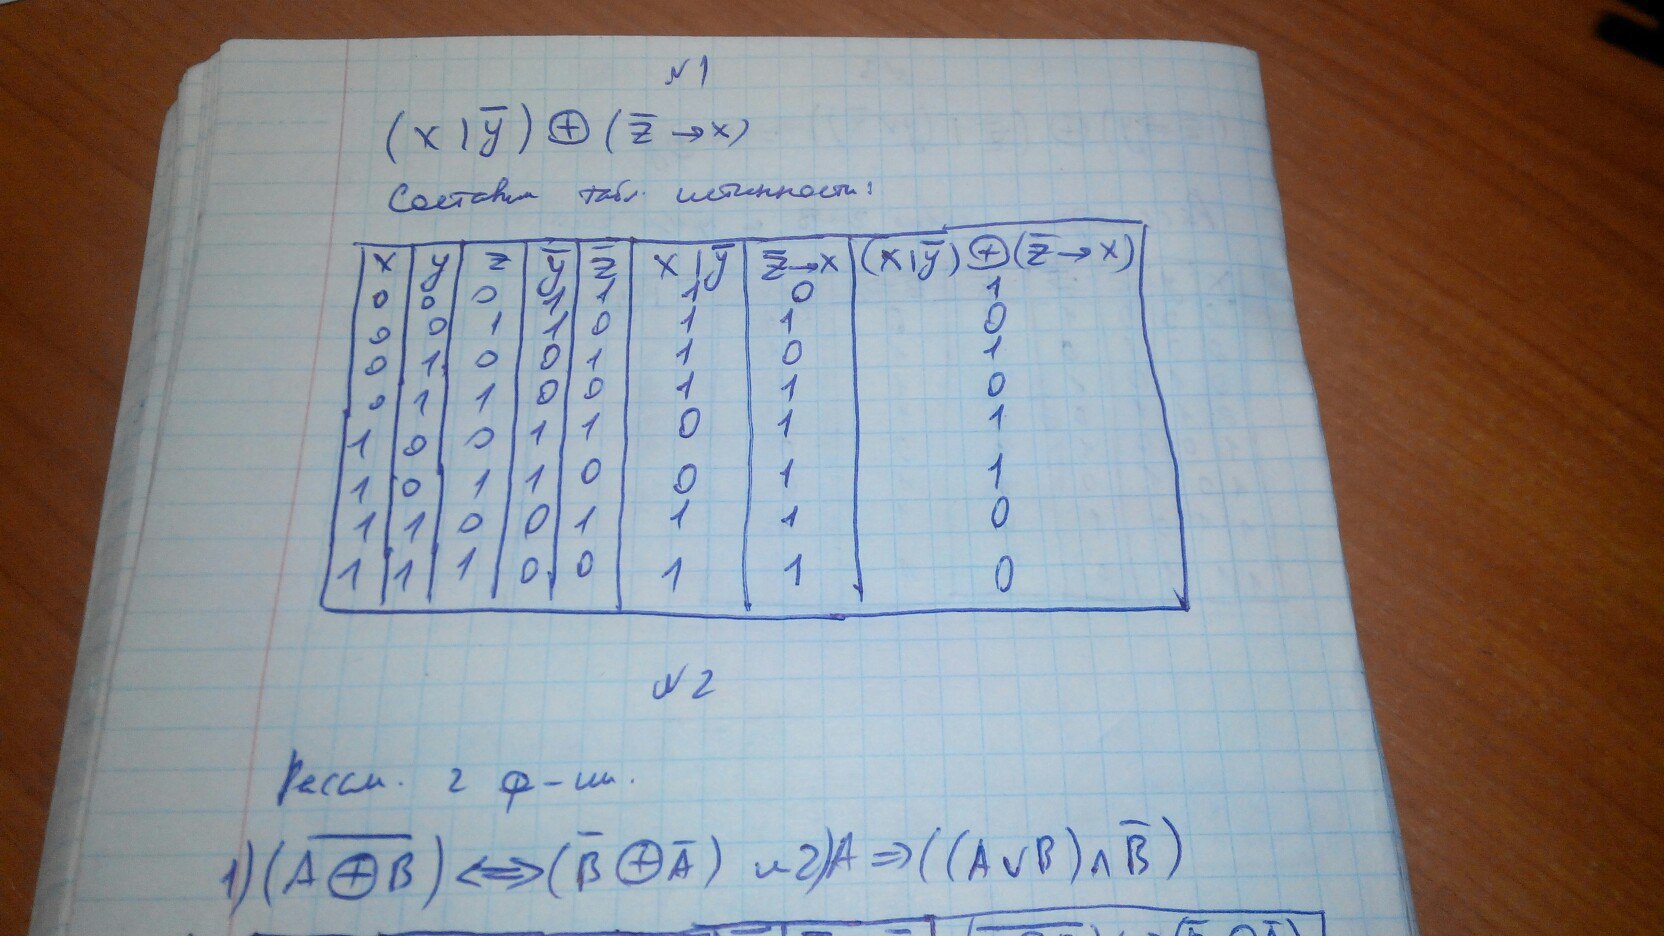 №1
(x | y̅) ⊕ (z̅ → x)
Составим табл. истинности:
x y z y̅ z̅ x | y̅ z̅ → x (x | y̅) ⊕ (z̅ → x)
0 0 0 1 1 1 0 1
0 0 1 1 0 1 1 0
0 1 0 0 1 1 0 1
0 1 1 0 0 1 1 0
1 0 0 1 1 0 1 1
1 0 1 1 0 0 1 1
1 1 0 0 1 1 1 0
1 1 1 0 0 1 1 0
№2
Рассм. 2 ф-ии.
1) (A̅ ⊕̅ B̅) <=> (B̅ ⊕ A̅) и 2) A => ((A ∨ B) ∧ B̅)